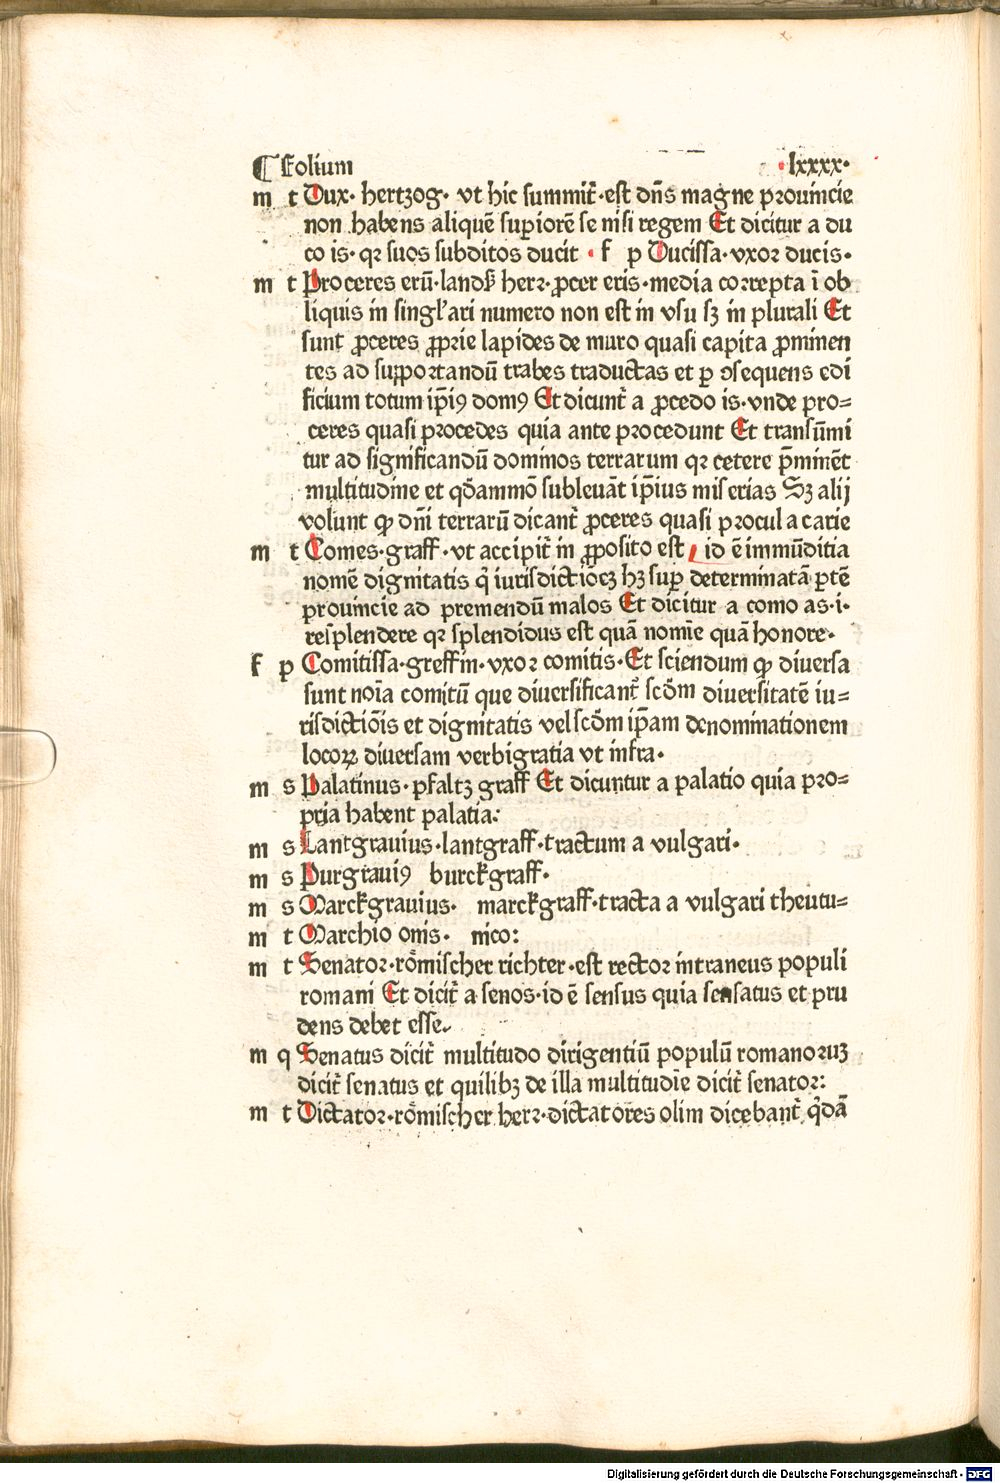 ¶ Folium ·lxxxx·
m t Dux· hertzog· vt hic summit᷑·est dn̄s magne prouincie
non habens aliquē supiorē se nisi regem Et dicitur a du
co is· qꝛ suos subditos ducit · f p Ducissa·vxor ducis·
m t Proceres erū·landß herꝛ·ꝓcer eris·media correpta ī ob
liquis in singl'ari numero non est in vsu sꝫ in plurali Et
sunt ꝓceres ꝓprie lapides de muro quasi capita ꝓminen
tes ad supportandū trabes traductas et p ꝯsequens edi
ficium totum ip̄iꝰ domꝰ Et dicunt᷑ a ꝓcedo is·vnde pro=
ceres quasi procedes quia ante procedunt Et transūmi
tur ad significandū dominos terrarum qꝛ cetere p̄minēt
multitudine et qd̄ammō subleuāt ip̄ius miserias Sꝫ alij
volunt ꝙ dn̄i terrarū dicant᷑ ꝓceres quasi procul a carie
m t Comes·graff·vt accipit᷑ in ꝓposito est id ē immūditia
nomē dignitatis q̇ iurisdictiōeꝫ hꝫ sup determinatā ptē
prouincie ad premendū malos Et dicitur a como as·i·
resplendere qꝛ splendidus est quā nomīe quā honore·
f p Comitissa·greffin·vxor comitis·Et sciendum ꝙ diuersa
sunt noīa comitū que diuersificant᷑ scd̄m diuersitatē iu=
risdictiōis et dignitatis vel scd̄m ip̄am denominationem
locoꝝ diuersam verbigratia vt infra·
m s Palatinus·pfaltz graff Et dicuntur a palatio quia pro=
pria habent palatia:
m s Lantgrauius·lantgraff·tractum a vulgari·
m s Purgrauiꝰ burckgraff·
m s Marckgrauius· marckgraff·tracta a vulgari theutu=
m t Marchio onis· nico:
m t Senator·römischer richter·est rector intraneus populi
romani Et dicit᷑ a senos·id ē sensus quia sensatus et pru
dens debet esse·
m q Senatus dicit᷑ multitudo dirigentiū populū romanoruꝫ
dicit᷑ senatus et quilibꝫ de illa multitudīe dicit᷑ senator:
m t Dictator·römischer herꝛ·dictatores olim dicebant᷑ q̇dā
Digitalisierung gefördert durch die Deutsche Forschungsgemeinschaft - DFG